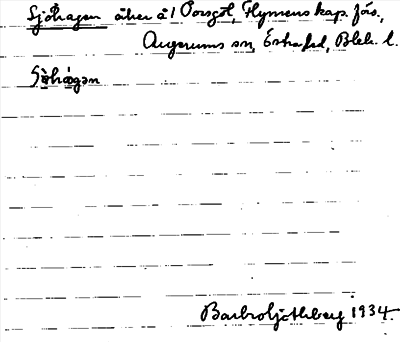 Sjöhagen åker å 1 Torsgöl, Flymens kap. förs.,
Augerums sn, Östra hd, Blek. l.
Sjöhagen
Barbro Ljothberg 1934.